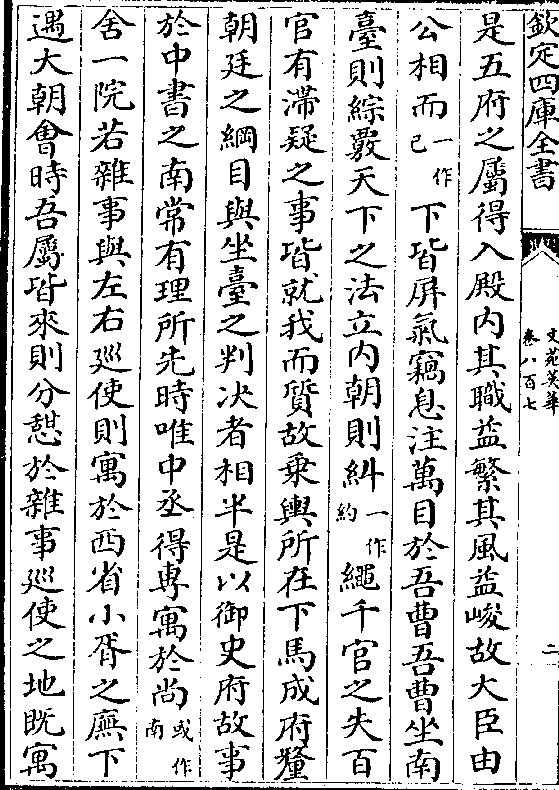 欽定四庫全書
文苑英華
卷八百七
二
是五府之屬得入殿内其職益繁其風益峻故大臣由
公相而一作已下皆屏氣竊息注萬目於吾曹吾曹坐南
臺則綜覈天下之法立内朝則糾一作約繩千官之失百
官有滯疑之事皆就我而質故乗輿所在下馬成府釐
朝廷之綱目與坐臺之判决者相半是以御史府故事
於中書之南常有理所先時唯中丞得專寓於尚或作南
舍一院若雜事與左右廵使則寓於西省小胥之廡下
遇大朝會時吾屬皆來則分憇於雜事廵使之地既寓